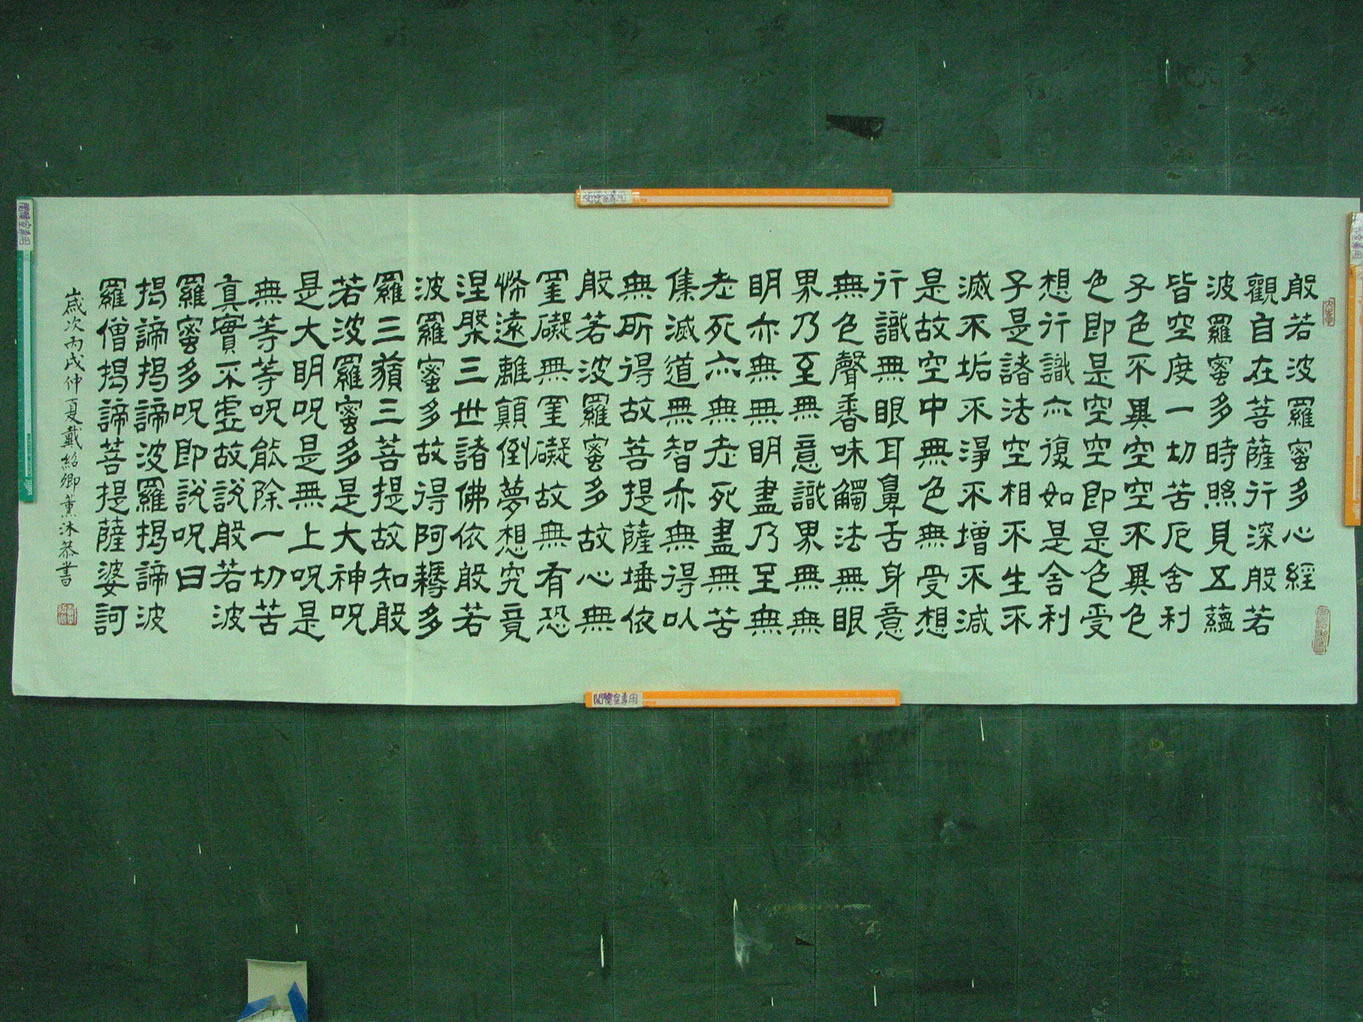 般若波羅蜜多心經
觀自在菩薩行深般若
波羅蜜多時照見五蘊
皆空度一切苦厄舍利
子色不異空空不異色
色即是空空即是色受
想行識亦復如是舍利
子是諸法空相不生不
滅不垢不淨不增不減
是故空中無色無受想
行識無眼耳鼻舌身意
無色聲香味觸法無眼
界乃至無意識界無無
明亦無無明盡乃至無
老死亦無老死盡無苦
集滅道無智亦無得以
無所得故菩提薩埵依
般若波羅蜜多故心無
罣礙無罣礙故無有恐
怖遠離顛倒夢想究竟
涅槃三世諸佛依般若
波羅蜜多故得阿耨多
羅三藐三菩提故知般
若波羅蜜多是大神呪
是大明呪是無上呪是
無等等呪能除一切苦
真實不虛故說般若波
羅蜜多呪即說呪曰
揭諦揭諦波羅揭諦波
羅僧揭諦菩提薩婆訶
歲次丙戌仲夏戴紹卿薰沐恭書